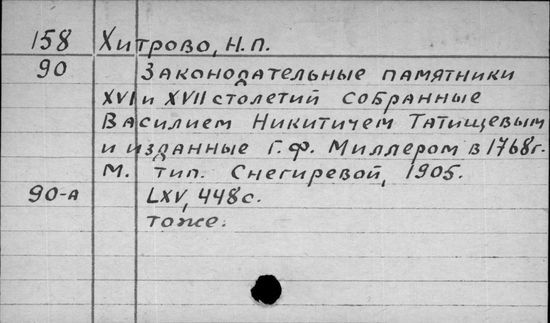 158 Хитрово, Н.П.
90 Законодательные памятники
XVI и XVII столетий собранные
Василием Никитичем Татищевым
и изданные Г.Ф. Миллером в 1768г.
М. тип. Снегиревой, 1905.
90-а LXV, 448с.
тоже.